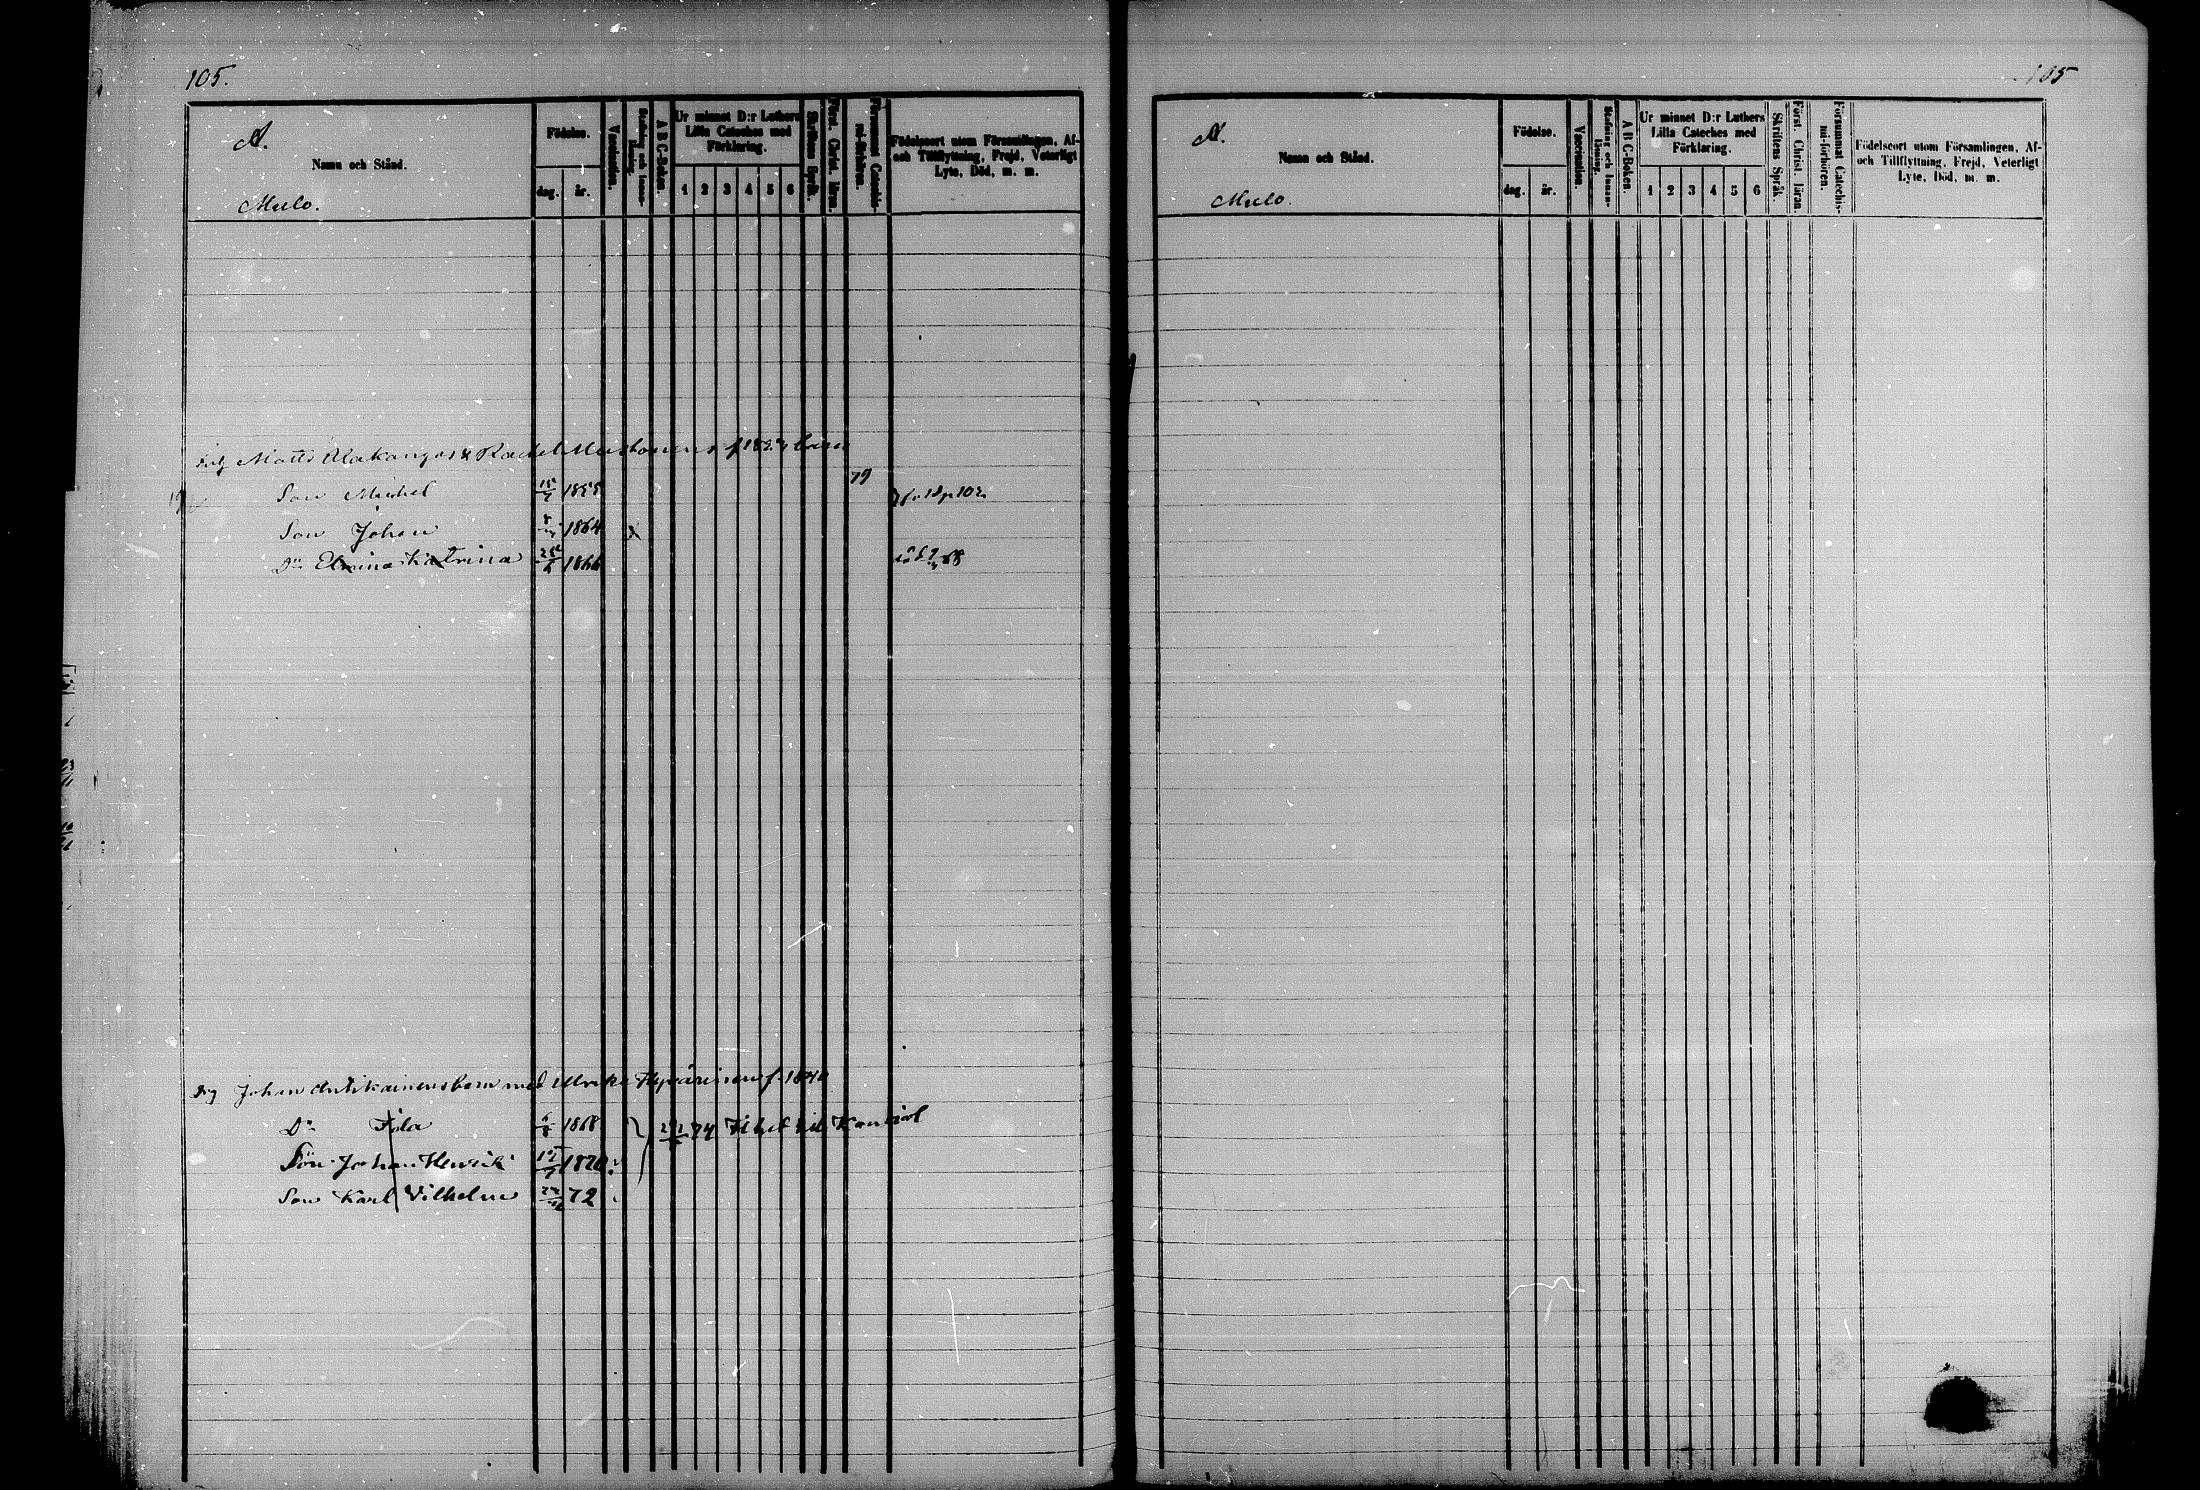 105.
A.
Namn och Stånd.
Mulo.
Födelse.
dag. år.
Vaccination.
Stafning och Innanläsning.
A B C-Boken.
Ur minnet D:r Luthers
Lilla Cateches med
Förklaring.
1 2 3 4 5 6
Skriftens Språk.
Först. Christ. läran.
Försummat Catechismi-förhören.
Födelseort utom Församlingen, Af-
och Tillflyttning, Frejd, Veterligt
Lyte, Död, m. m.
Matts Alakangas & Rachel barn
79
Son Michel 1858
Son Johan 1864 x
Dr Elvina Katrina 1866 död
Johan Antikainens barn med Ulrika Hyvärinen f. 1840
Dr Fila 6/8 1868 74 Flytt till
Son Johan Henrik 1870
Son Karl Vilhelm 72
105
A.
Namn och Stånd.
Mulo.
Födelse.
dag. år.
Vaccination.
Stafning och Innanläsning.
A B C-Boken.
Ur minnet D:r Luthers
Lilla Cateches med
Förklaring.
1 2 3 4 5 6
Skriftens Språk.
Först. Christ. läran.
Försummat Catechismi-förhören.
Födelseort utom Församlingen, Af-
och Tillflyttning, Frejd, Veterligt
Lyte, Död, m. m.